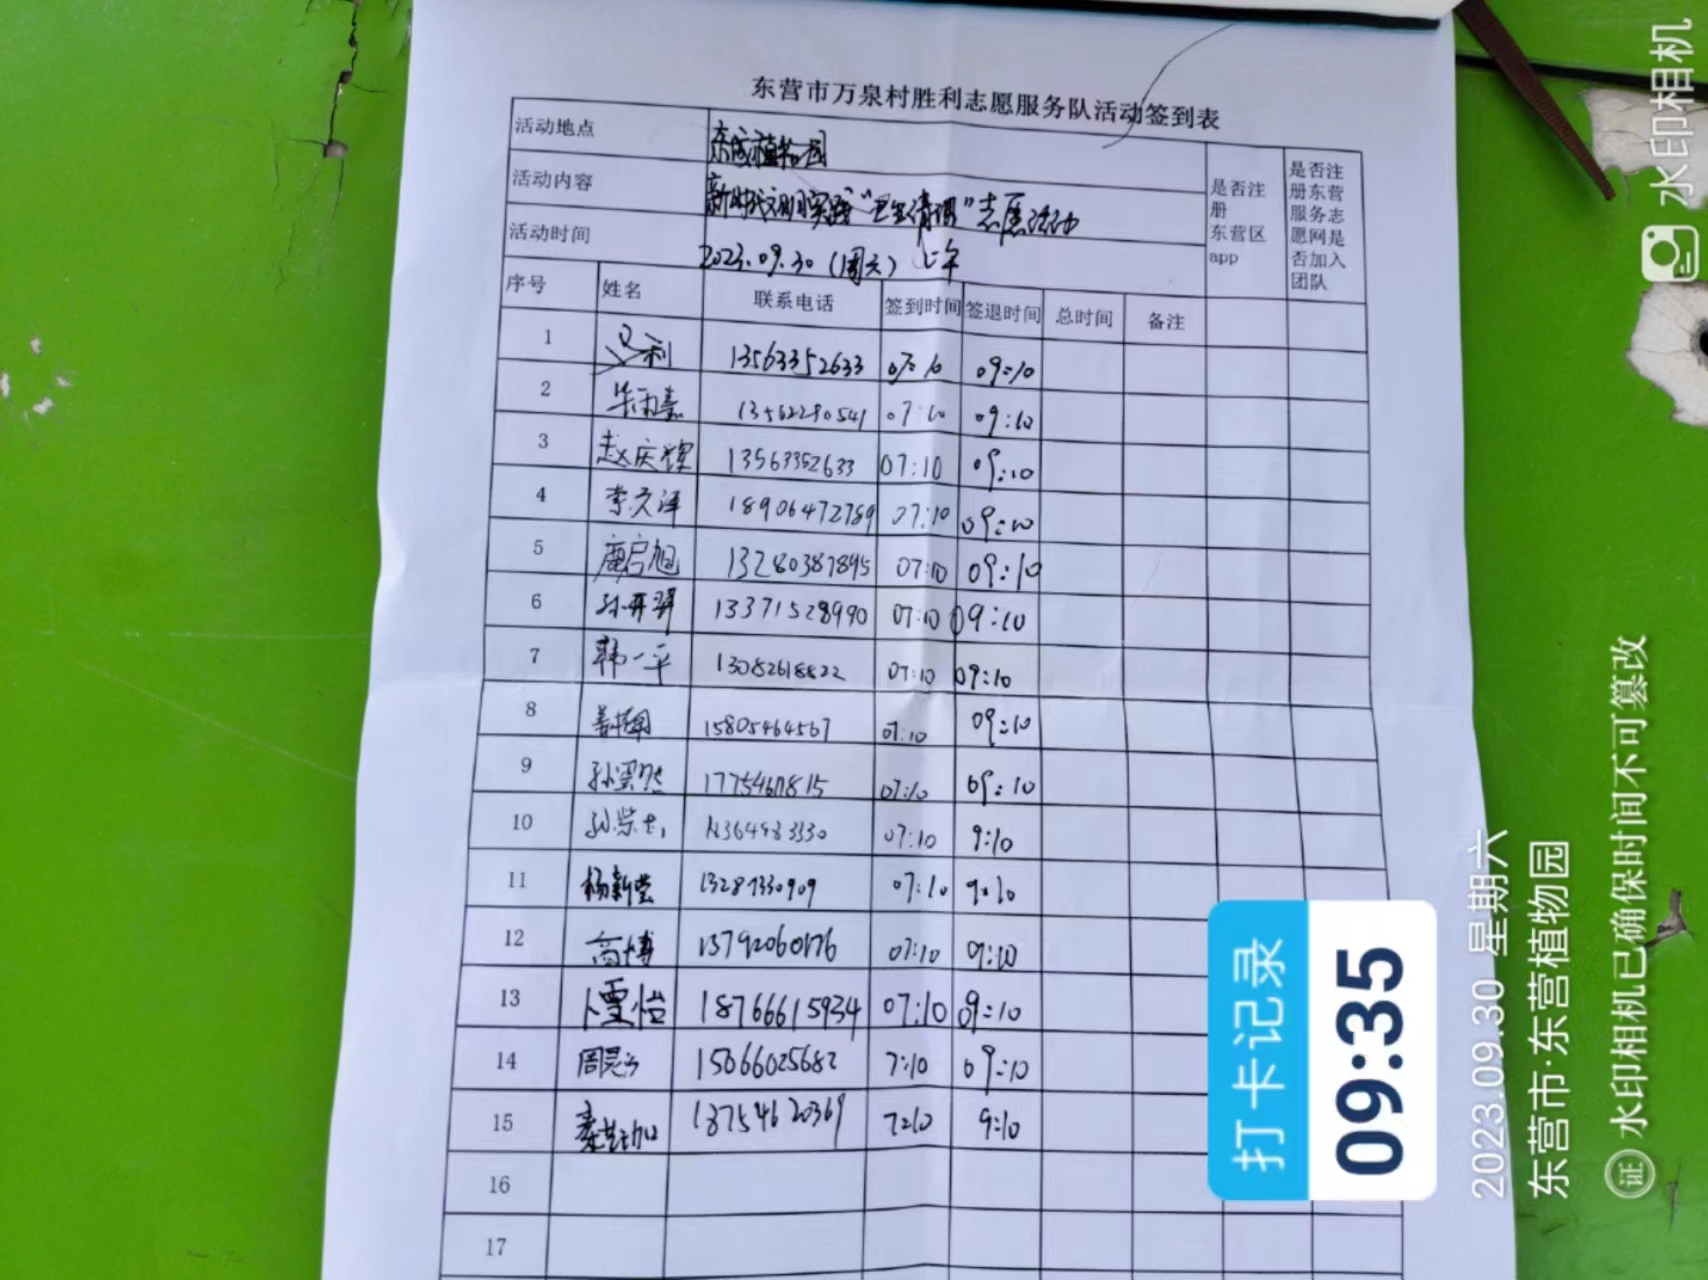 东营市万泉村胜利志愿服务队活动签到表
活动地点 东城植物园
活动内容 新时代文明实践“卫生清理”志愿活动
活动时间 2023.09.30(周六)上午
是否注册东营区app
是否注册东营服务志愿网是否加入团队
序号 姓名 联系电话 签到时间 签退时间 总时间 备注
1 利 13563352633 07:10 09:10
2 13562280541 07:10 09:10
3 赵庆辉 13563352633 07:10 09:10
4 李文泽 18906472789 07:10 09:10
5 鹿启旭 13280387895 07:10 09:10
6 孙开羿 13371528990 07:10 09:10
7 韩一平 13082618822 07:10 09:10
8 姜 15805464567 07:10 09:10
9 孙 07:10 09:10
10 孙荣 07:10 9:10
11 杨新莹 13287330909 07:10 9:10
12 高博 13792060176 07:10 9:10
13 卜雯怡 18766615934 07:10 09:10
14 周昆 15066025682 7:10 09:10
15 秦 18754620369 7:10 9:10
16
17
打卡记录
09:35
2023.09.30 星期六
东营市·东营植物园
证 水印相机已确保时间不可篡改
水印相机